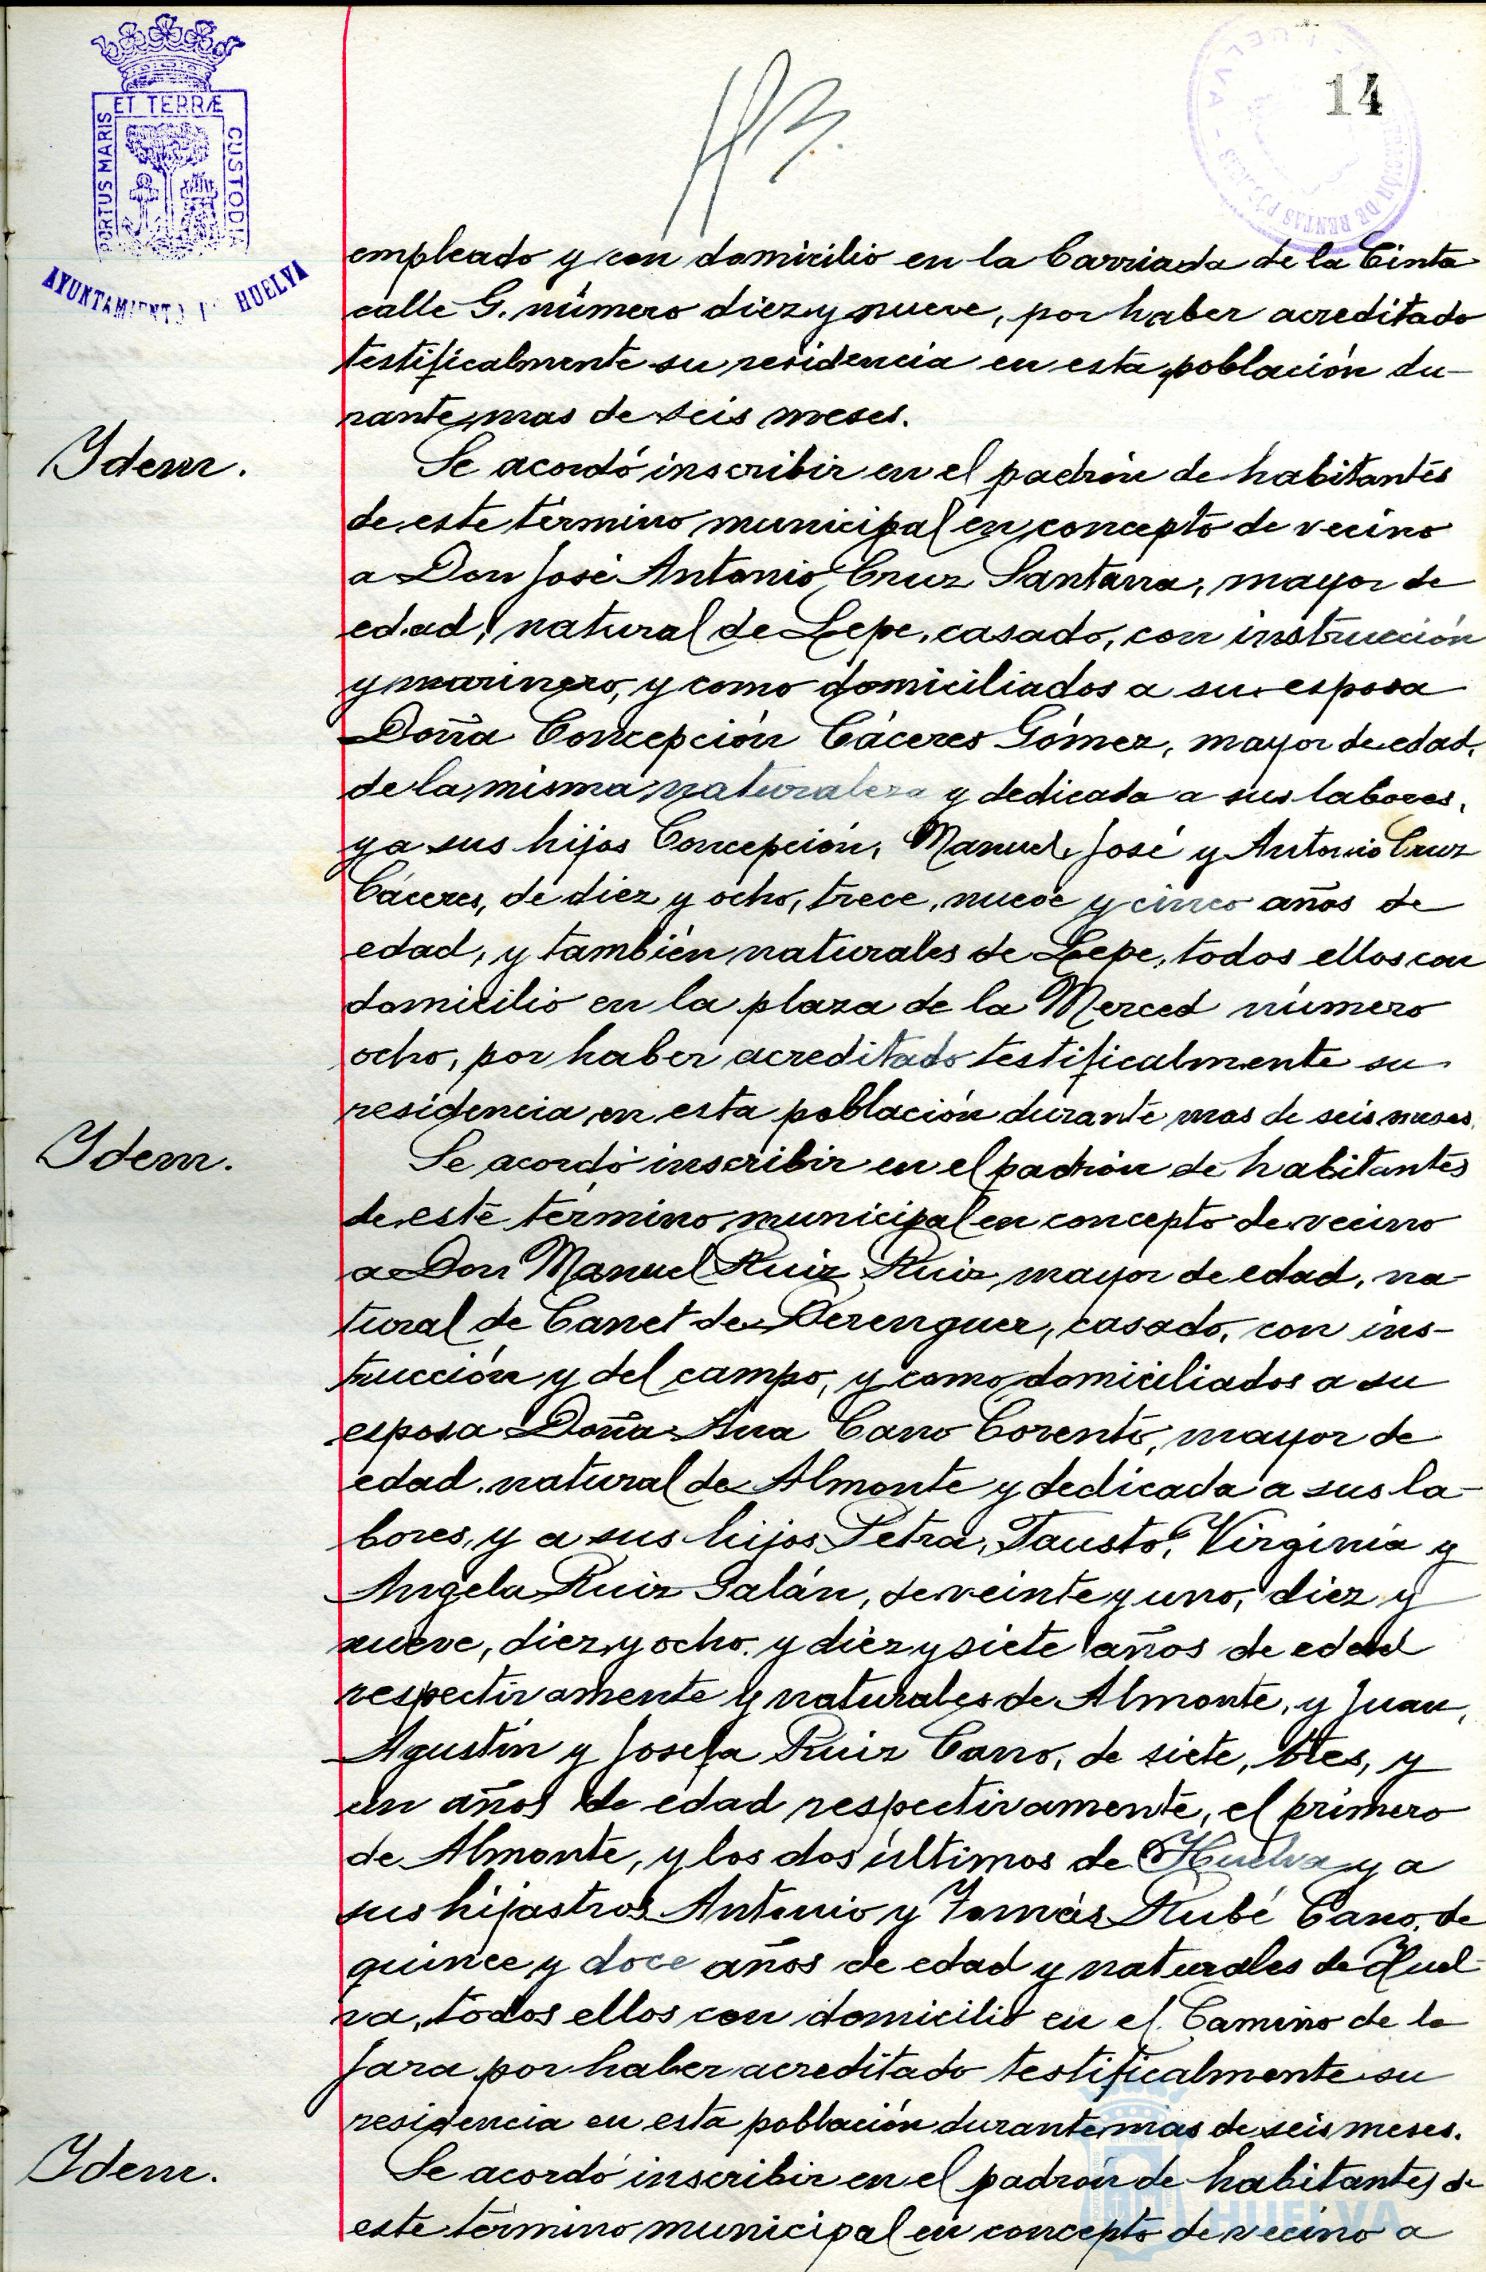 14
ET TERRÆ
PORTUS MARIS
CUSTODIA
AYUNTAMIENTO DE HUELVA
empleado y con domicilio en la barriada de la Cinta
calle G. número diez y nueve, por haber acreditado
testificalmente su residencia en esta población du-
rante mas de seis meses.
Idem.
Se acordó inscribir en el padrón de habitantes
de este término municipal en concepto de vecino
a Don José Antonio Cruz Santana, mayor de
edad, natural de Lepe, casado, con instrucción
y marinero, y como domiciliados a su esposa
Doña Concepción Cáceres Gómez, mayor de edad,
de la misma naturaleza y dedicada a sus labores,
y a sus hijos Concepción, Manuel, José y Antonio Cruz
Cáceres, de diez y ocho, trece, nueve y cinco años de
edad, y también naturales de Lepe, todos ellos con
domicilio en la plaza de la Merced número
ocho, por haber acreditado testificalmente su
residencia en esta población durante mas de seis meses.
Idem.
Se acordó inscribir en el padrón de habitantes
de este término municipal en concepto de vecino
a Don Manuel Ruiz Ruiz, mayor de edad, na-
tural de Canet de Berenguer, casado, con ins-
trucción y del campo, y como domiciliados a su
esposa Doña Ana Cano mayor de
edad, natural de Almonte y dedicada a sus la-
bores, y a sus hijos Petra, Fausto, Virginia y
Angela Ruiz Galán, de veinte y uno, diez y
nueve, diez y ocho y diez y siete años de edad
respectivamente y naturales de Almonte, y Juan,
Agustín y Josefa Ruiz Cano, de siete, tres, y
un años de edad respectivamente, el primero
de Almonte, y los dos últimos de Huelva y a
sus hijastros Antonio y Tomás Rubé Cano, de
quince y doce años de edad y naturales de Huel-
va, todos ellos con domicilio en el Camino de la
Jara por haber acreditado testificalmente su
residencia en esta población durante mas de seis meses.
Idem.
Se acordó inscribir en el padrón de habitantes de
este término municipal en concepto de vecino a
HUELVA